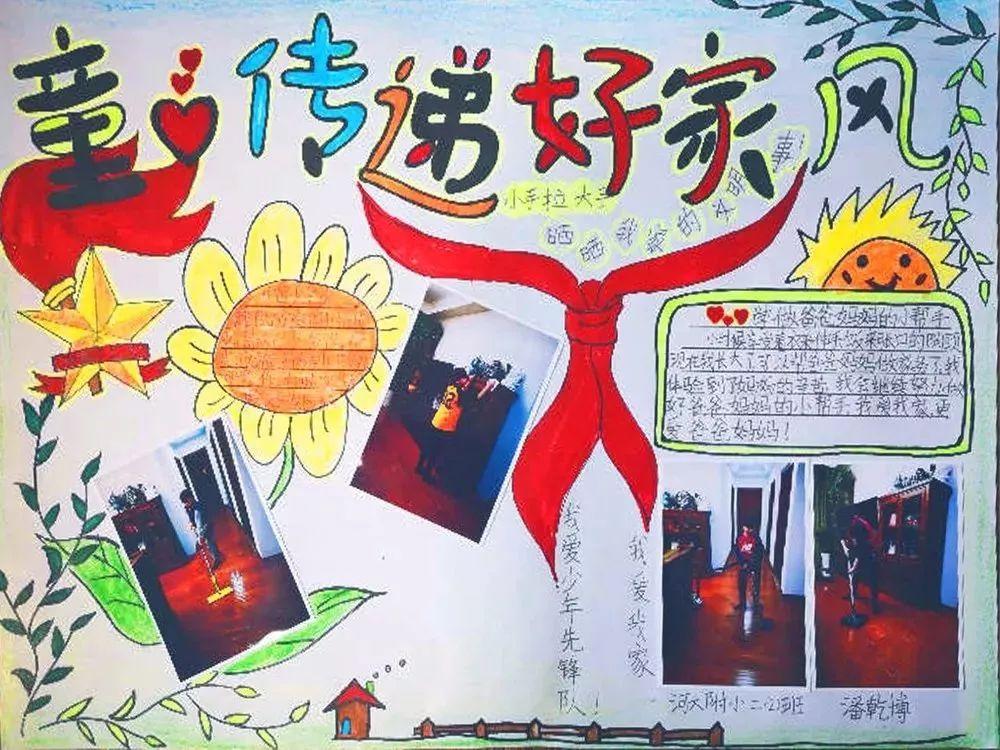 童心传递好家风
小手拉大手
晒晒我家的文明事!
学做爸爸妈妈的小帮手
现在我长大了可以帮爸爸妈妈做家务了,我
体验到了妈妈的辛苦,我会继续努力做
好爸爸妈妈的小帮手,我爱我家,更
爱爸爸妈妈!
我爱少年先锋队!
我爱我家
河大附小二(2)班
潘乾博